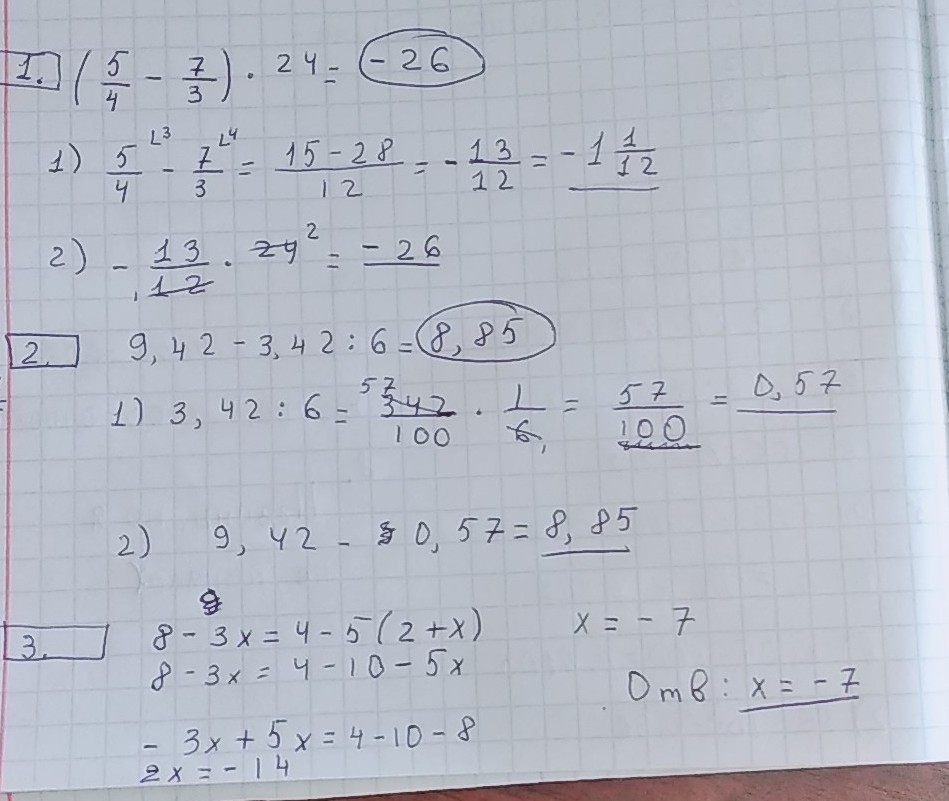 1. (5/4 - 7/3) · 24 = -26
1) 5/4 ⌊3 - 7/3 ⌊4 = (15 - 28)/12 = -13/12 = -1 1/12
2) -13/12 · 24 2 = -26
1
2. 9,42 - 3,42 : 6 = 8,85
1) 3,42 : 6 = 57 342/100 · 1/6 1 = 57/100 = 0,57
2) 9,42 - 0,57 = 8,85
3. 8 - 3x = 4 - 5(2 + x)
8 - 3x = 4 - 10 - 5x
-3x + 5x = 4 - 10 - 8
2x = -14
x = -7
Отв: x = -7